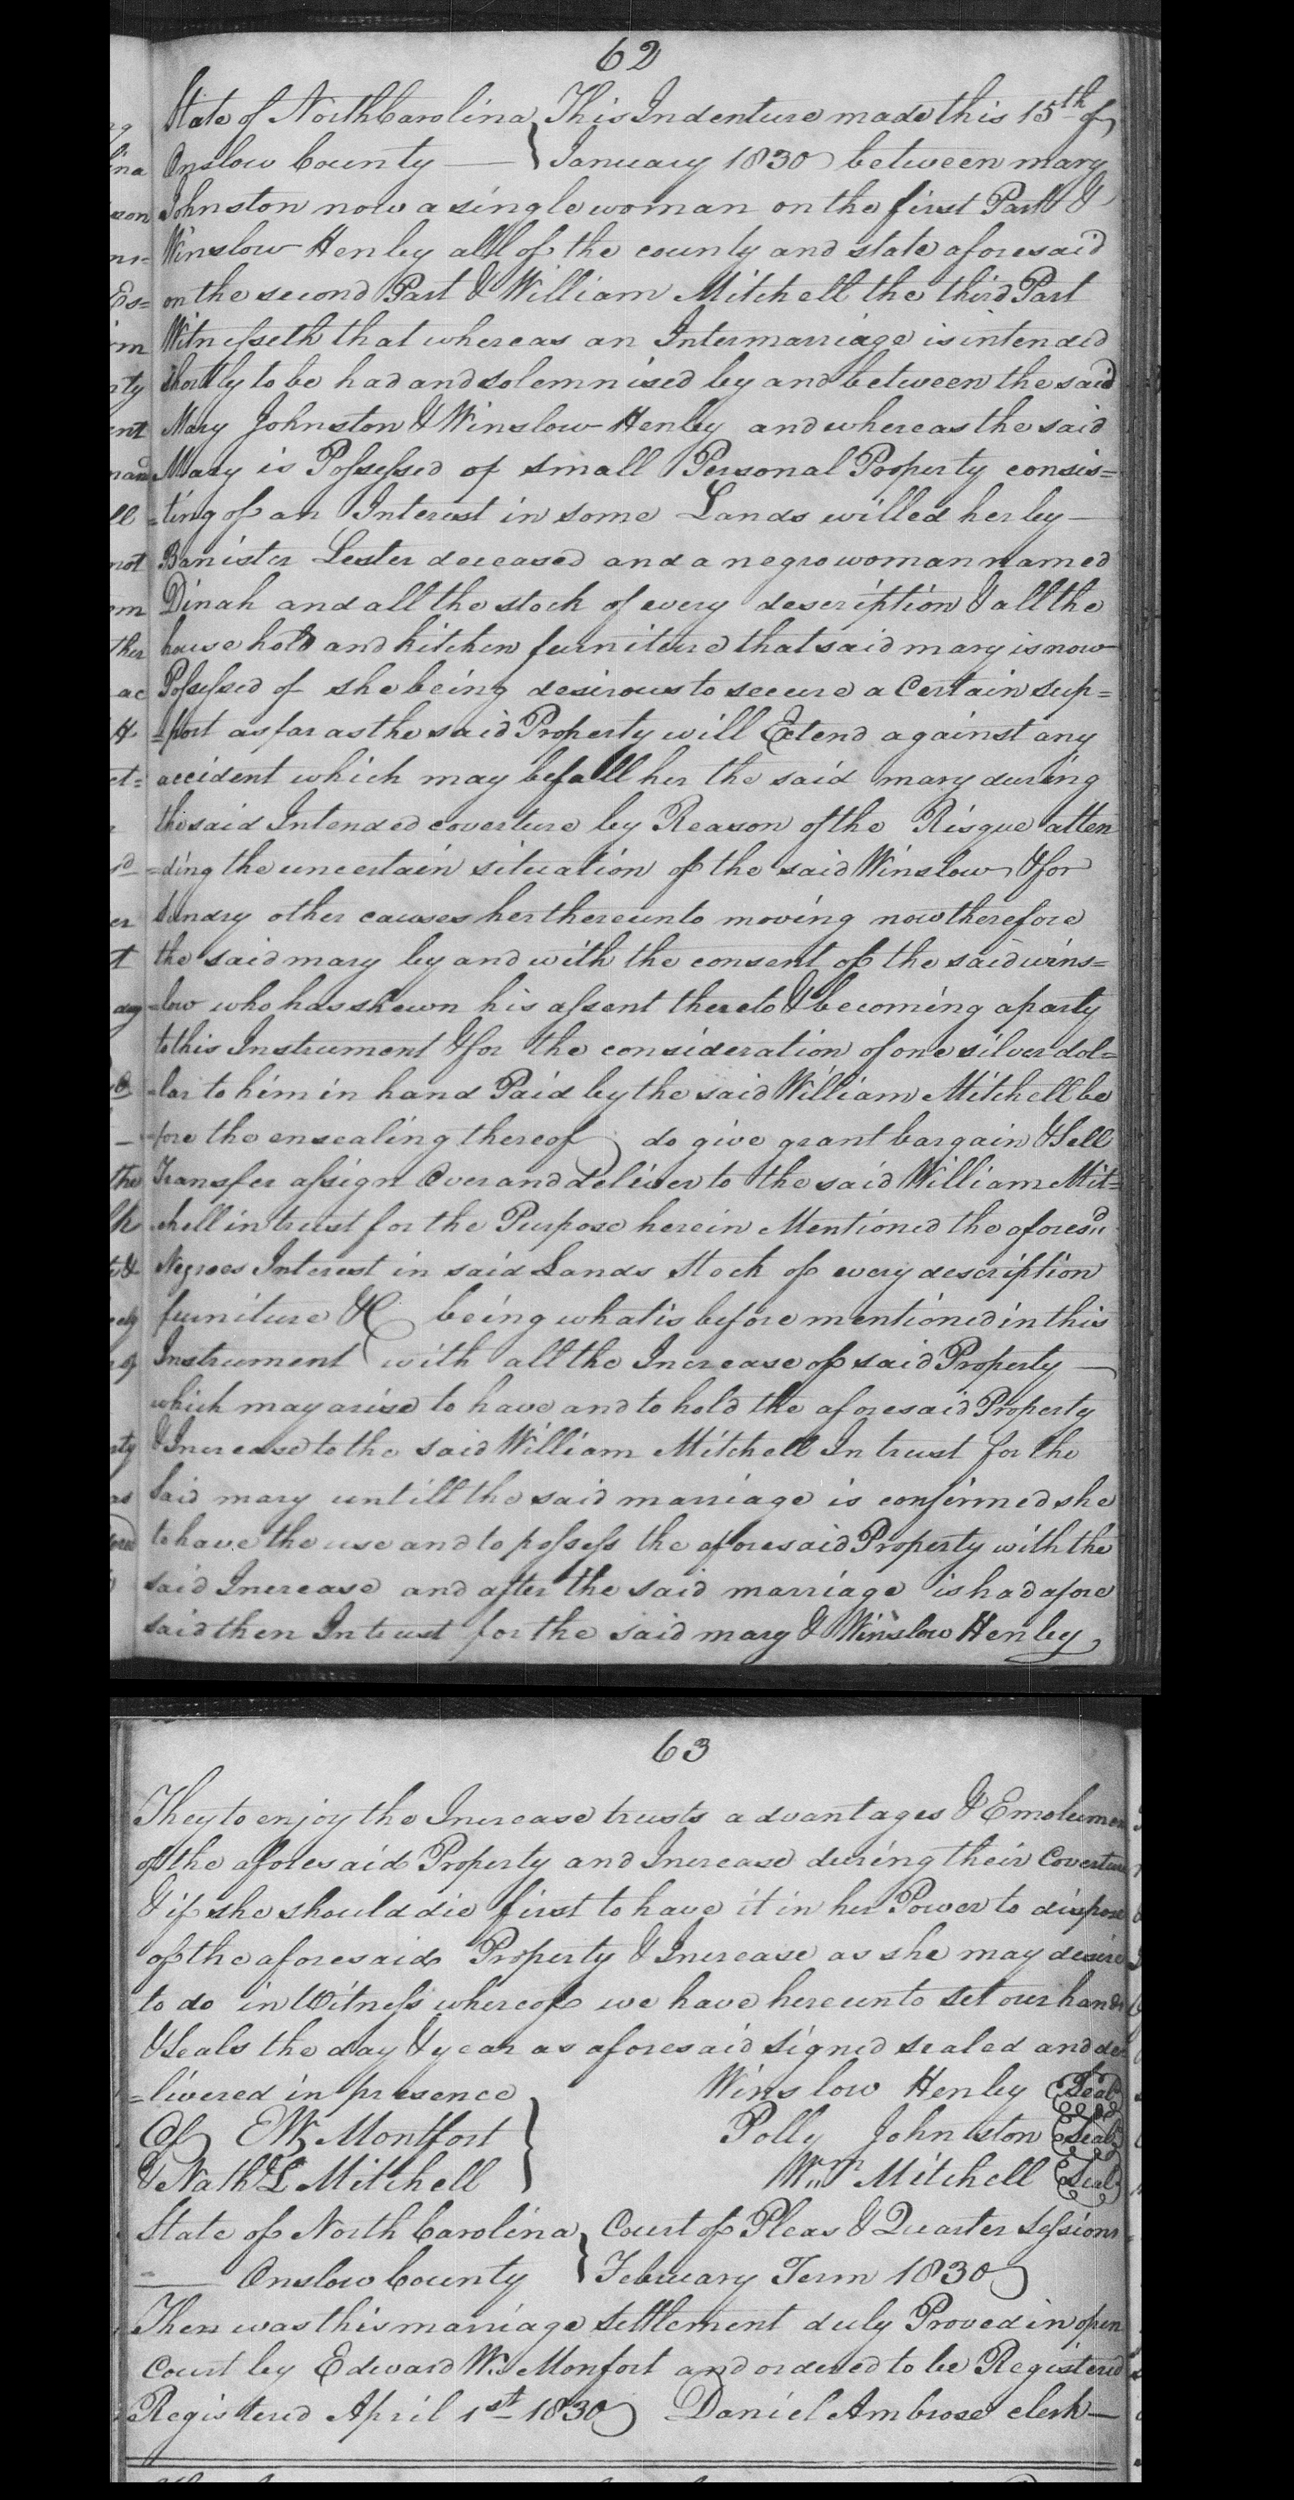 62
State of North Carolina } This Indenture made this 15th of
Onslow County — } January 1830 between mary
Johnston now a single woman on the first Part &
Winslow Henley all of the county and state aforesaid
on the second Part & William Mitchell the third Part
Witnesseth that whereas an Intermarriage is intended
shortly to be had and solemnised by and between the said
Mary Johnston & Winslow Henley and whereas the said
Mary is Possessed of small Personal Property consis=
=ting of an Interest in some Lands willed her by —
Banister Lester deceased and a negro woman named
Dinah and all the stock of every description & all the
house hold and kitchen furniture that said mary is now
Possessed of she being desirous to secure a Certain sup=
=port as far as the said Property will Extend against any
accident which may befall her the said mary during
the said Intended coverture by Reason of the Risque atten
=ding the uncertain situation of the said Winslow & for
sundry other causes her thereunto moving now therefore
the said mary by and with the consent of the said wins=
=low who has shewn his assent thereto & becoming a party
to this Instrument & for the consideration of one silver dol=
=lar to him in hand Paid by the said William Mitchell be
=fore the ensealing thereof do give grant bargain & Sell
Transfer assign Over and deliver to the said William Mit=
chell in trust for the Purpose herein Mentioned the aforesd
Negroes Interest in said Lands Stock of every description
furniture &C being what is before mentioned in this
Instrument with all the Increase of said Property —
which may arise to have and to hold the aforesaid Property
& Increase to the said William Mitchell In trust for the
Said mary untill the said marriage is confirmed she
to have the use and to possess the aforesaid Property with the
said Increase and after the said marriage is had afore
said then In trust for the said mary & Winslow Henley
63
They to enjoy the Increase trusts advantages & Emolumen
of the aforesaid Property and Increase during their Coverture
& if she should die first to have it in her Power to dispose
of the aforesaid Property & Increase as she may desire
to do in Witness whereof we have hereunto set our hands
& Seals the day & year as aforesaid signed sealed and de
=livered in presence } Winslow Henley Seal
Of E W Montfort } Polly Johnston Seal
& Nathl L Mitchell } Wm Mitchell Seal
State of North Carolina } Court of Pleas & Quarter Sessions
— Onslow County } February Term 1830
Then was this marriage settlement duly Proved in open
Court by Edward W. Monfort and ordered to be Registered
Registered April 1st 1830 Daniel Ambrose clerk —